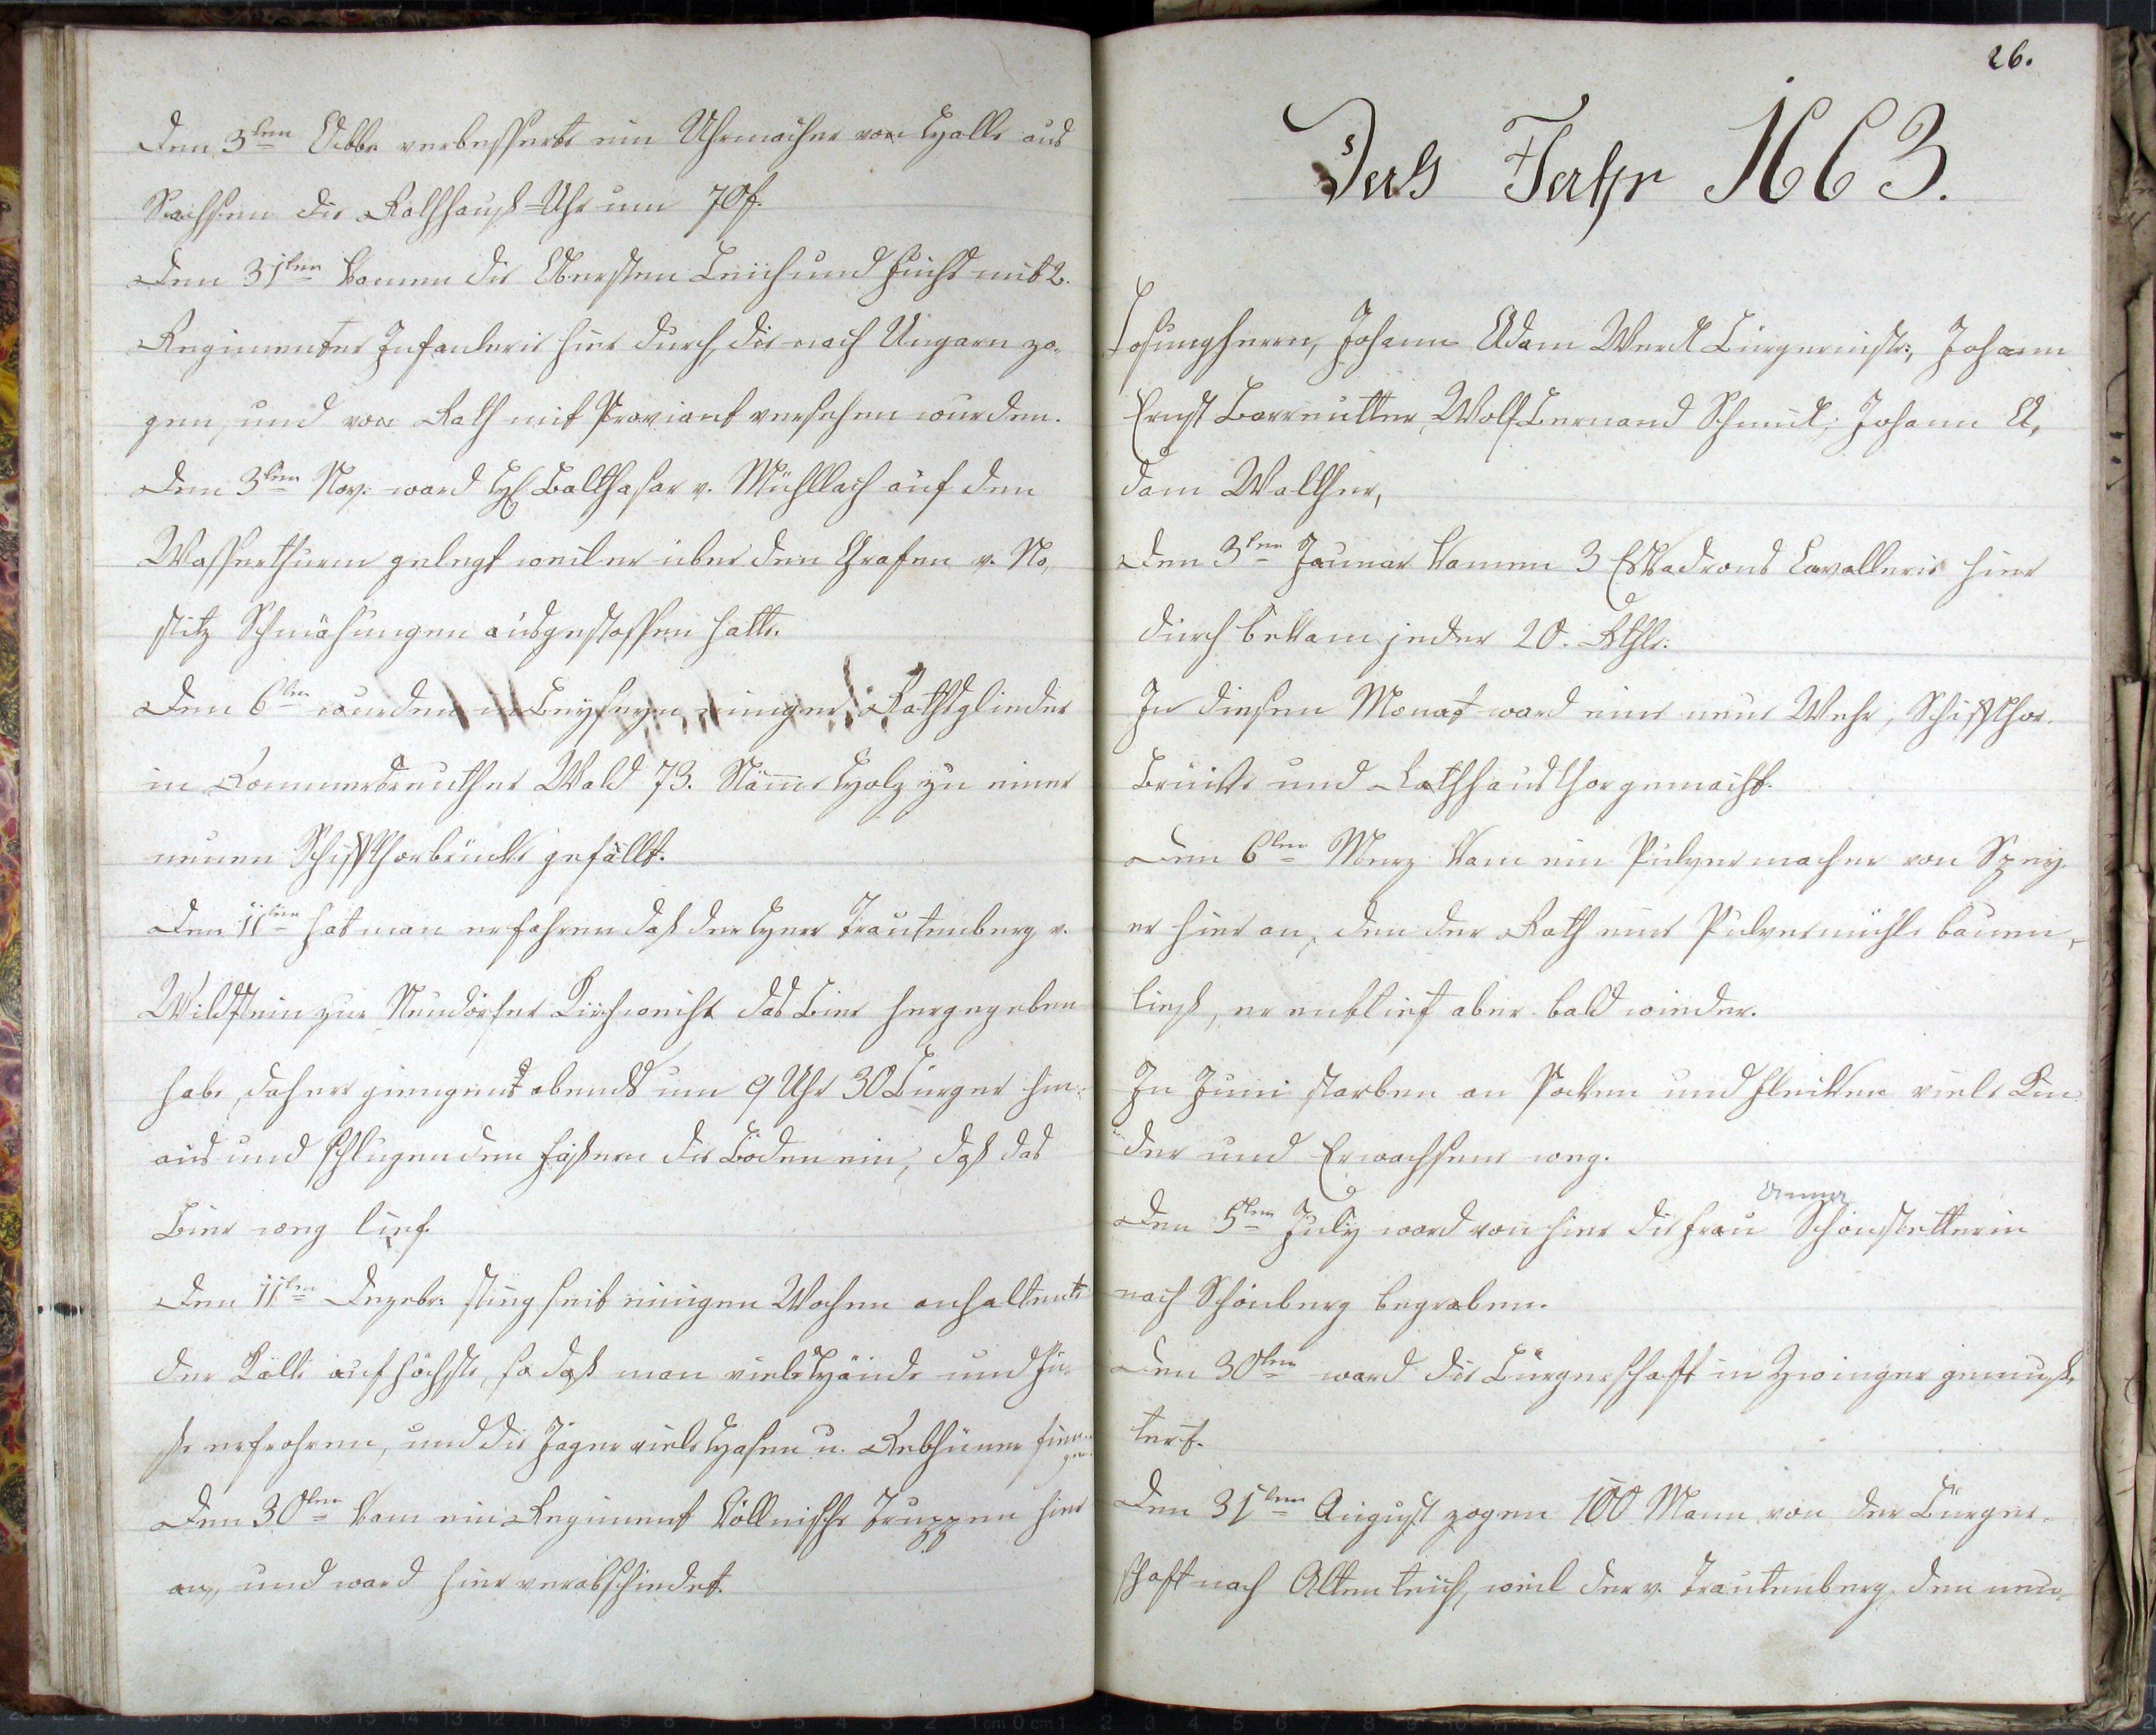 Den 3ten 8tobr verbesserte ein Uhrmacher von Halle aus
Sachsen die Rathhauß-Uhr um 70f.
Den 31ten kamen die Obersten und Fuchs mit 2.
Regimenter Infanterie hier durch, die nach Ungarn zo-
gen, und von Rath mit Proviant versehen wurden.
Den 3ten Nov: ward H Balthasar v. Mühllach auf den
Wasserthurm gelegt weil er über den Grafen v. No,
stitz Schmähungen ausgestossen hatte.
Den 6ten wurden in Beyseyn einiger Rathsglieder
in Kommersreuther Wald 73. Stämme Holz zu einer
neuen Schiffthorbrücke gefällt.
Den 11ten hat man erfahren daß der Herr Trautenberg v.
Wildstein zur Neudörfer Kirchweihe das Bier hergegeben
habe, daher giengens abends um 9 Uhr 30 Bürger hin-
aus und schlugen den Fäßern die Böden ein, daß das
Bier weg lief.
Den 11ten Dezebr: stieg seit einigen Wochen anhaltente
der Kälte aufs höchste, so daß man viele Hände und Fü-
ße erfrohren, und die Jäger viele Hasen u. Rebhüner fien-
gen.
Den 30ten kam ein Regiment Köllnische Truppen hier
an, und ward hier verabschiedet.
26.
Das Jahr 1663.
Losungherrn, Johann Adam Werdl Bürgermstr:, Johann
Ernst Barreutter, Wolf Bernard Schmidl, Johann A,
dam Walther,
Den 3ten Jaunar kamen 3 Eskadrons Cavallerie hier
durch bekam jeder 20. Rthlr:
In diesen Monat ward eine neue Wehr, Schiffthor-
Brücke und Rathhausthor gemacht.
Den 6ten Merz kam ein Pulvermacher von Spey-
er hier an, den der Rath eine Pulvermühle bauen,
ließ, er entlief aber bald wieder.
In Juni starben an Pocken und Flecken viele Kin-
der und Erwachsene weg.
Anna
Den 5ten July ward von hier die Frau Schönstetterin
nach Schönberg begraben.
Den 30ten ward die Bürgerschaft in Zwinger gemuß,
tert.
Den 31ten August zogen 100 Mann von der Bürger-
schaft nach Altenteich, weil der v. Trautenberg den neu-